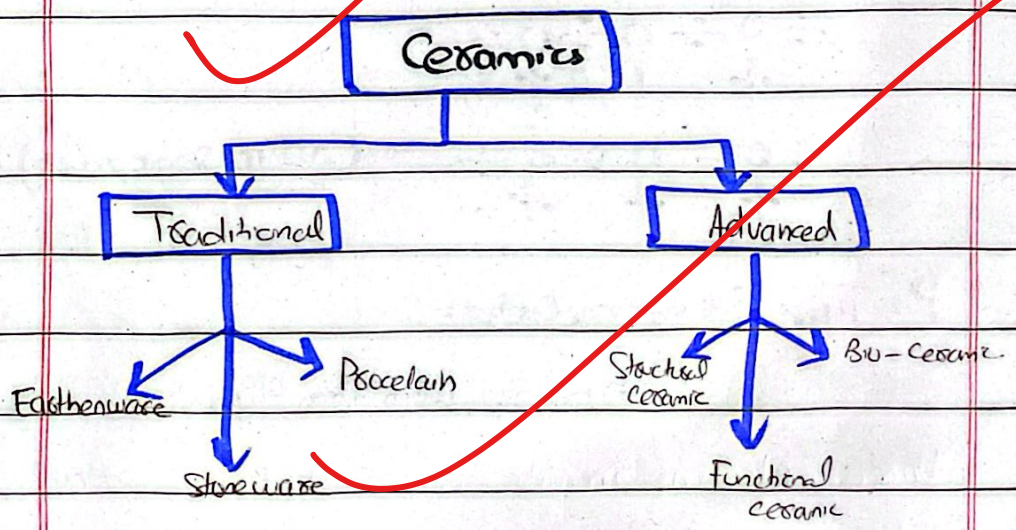 Ceramics
Traditional
Advanced
Earthenware
Stoneware
Procelain
Structural
ceramic
Functional
ceramic
Bio-Ceramic